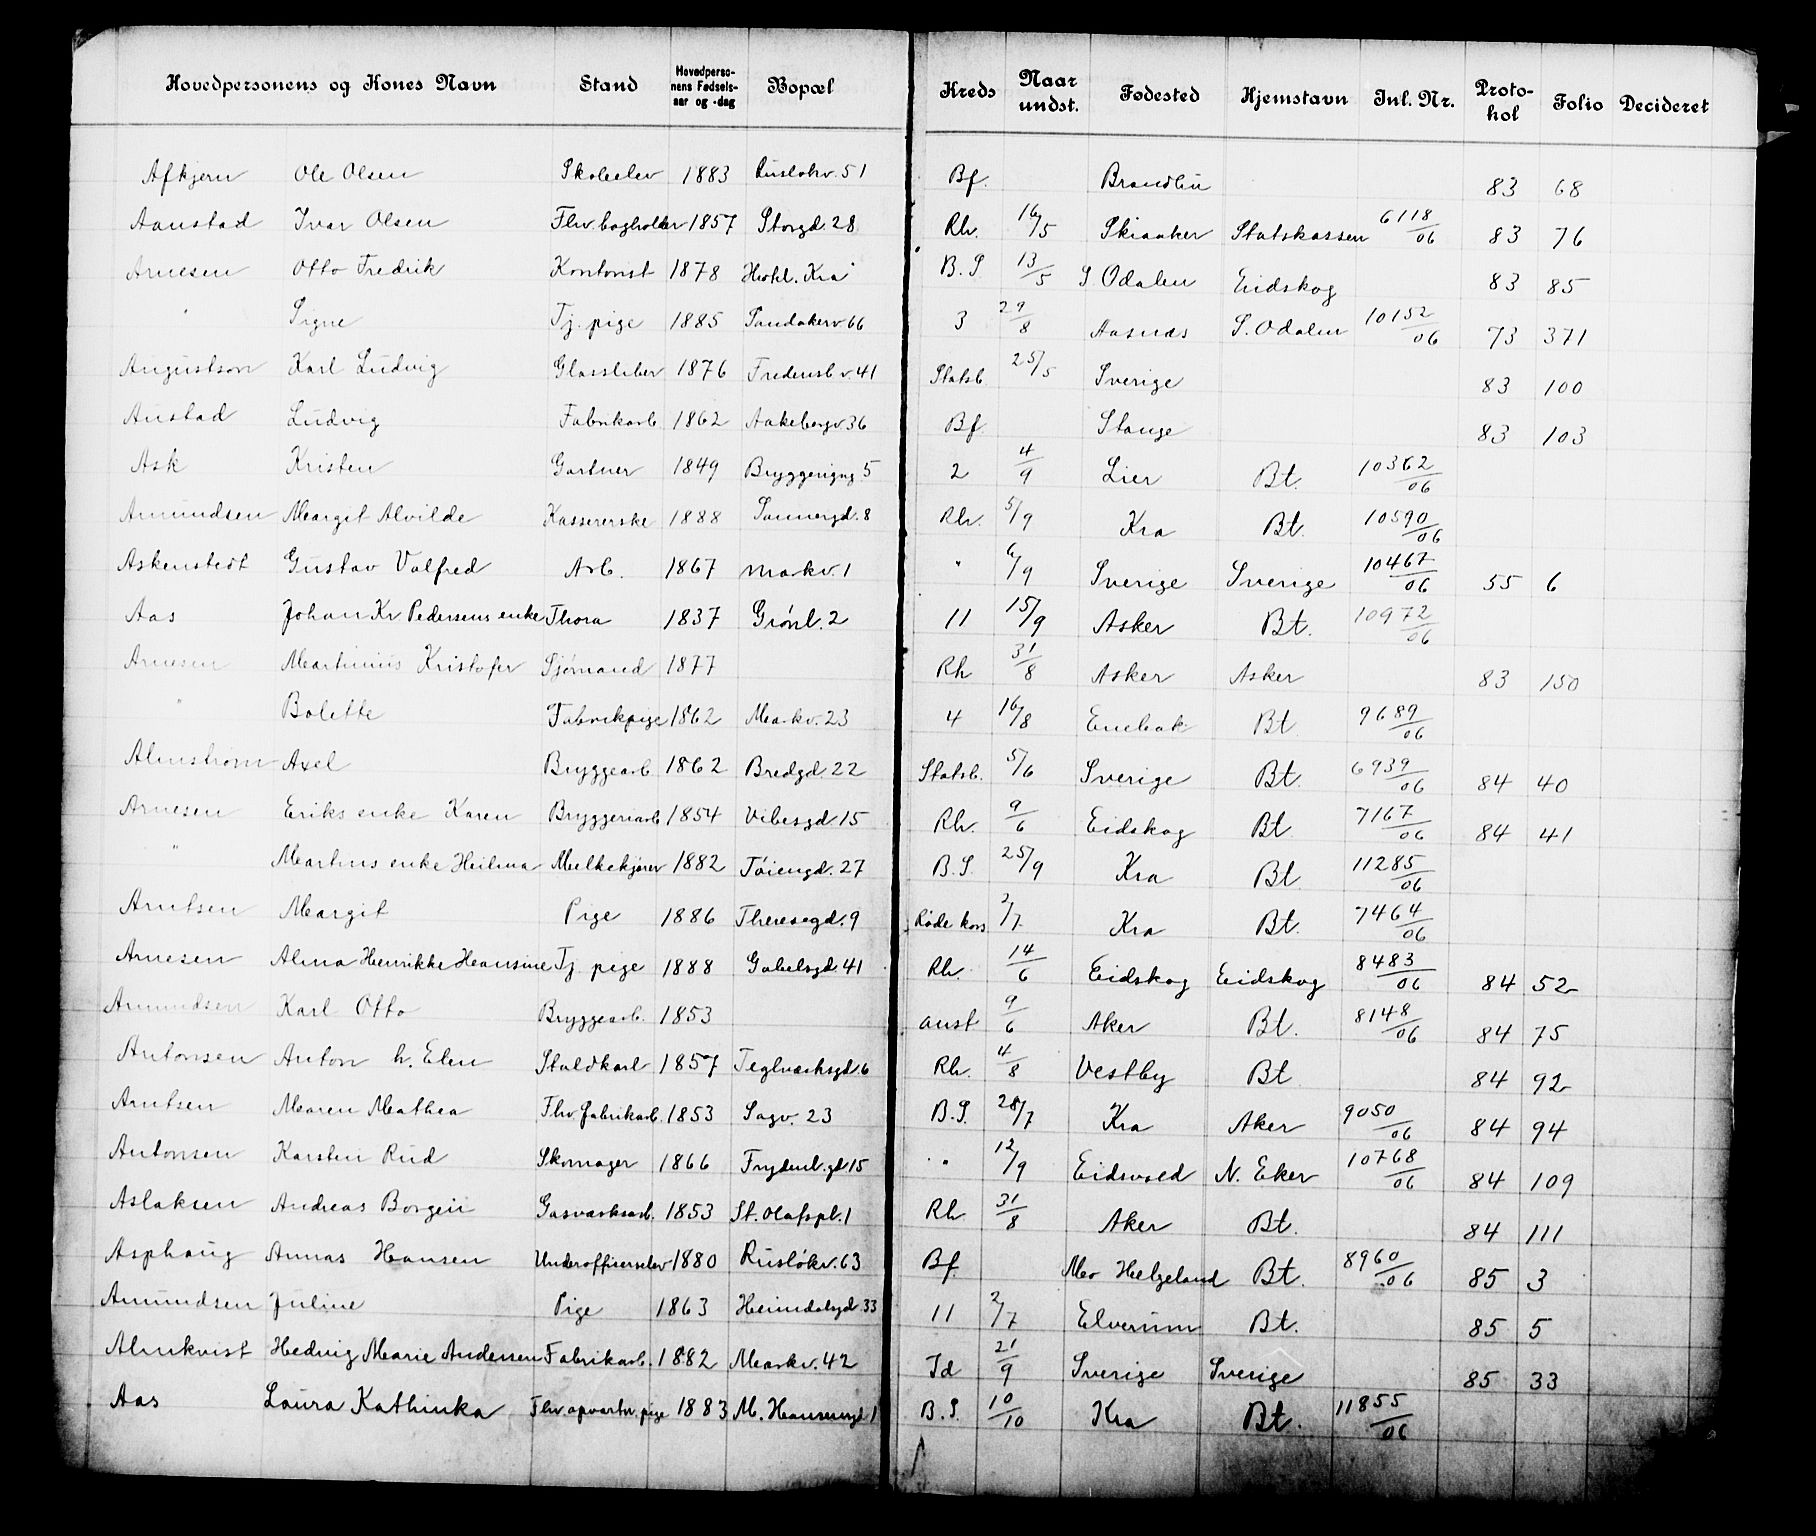 Hovedpersonens og Kones Navn Stand Hovedpersonens Fødselsaar og -dag Bopæl Kreds Naar undst. Fødested Hjemstavn Inl. Nr. Protokol Folio Decideret
Afkjern Ole Olsen Skoleelev 1883 Rusløkv. 51 Bf. Brandbu 83 68
Aanstad Ivar Olsen Fhv. bogholder 1857 Storgd. 28 Rh. 16/5 Skiaaker Statskassen 6118/06 83 76
Arnesen Otto Fredrik Kontorist 1878 Hotel. Kra B.S. 13/5 S. Odalen Eidskog 83 85
" Signe Tj. pige 1885 Sandakerv 66 3 29/8 Aasnæs S. Odalen 10152/06 73 371
Augustson Karl Ludvig Glassliber 1876 Fredensb.v. 41 Statsb. 25/5 Sverige 83 100
Austad Ludvig Fabrikarb. 1862 Aakebergv 36 Bf. Stange 83 103
Ask Kristen Gartner 1849 Bryggerigng 5 2 4/9 Lier Bt. 10362/06
Amundsen Margit Alvilde Kassererske 1888 Sannergd. 8 Rh. 5/9 Kra Bt. 10590/06
Askenstedt Gustav Valfred Arb. 1867 Markv. 1 " 6/9 Sverige Sverige 10467/06 55 6
Aas Johan Kr Pedersens enke Thora 1837 Grønl. 2 11 15/9 Asker Bt. 10972/06
Arnesen Martinius Kristofer Sjømand 1877 Rh 31/8 Asker Asker 83 150
" Bolette Fabrikpige 1862 Markv. 23 4 16/8 Enebak Bt. 9689/06
Almstrøm Axel Bryggearb. 1862 Bredgd. 22 Statsb. 5/6 Sverige Bt. 6939/06 84 40
Arnesen Eriks enke Karen Bryggeriarb 1854 Vibesgd. 15 Rh. 9/6 Eidskog Bt 7167/06 84 41
" Martins enke Heilma Melkekjører 1882 Tøiengd. 27 B.S. 25/9 Kra Bt 11285/06
Arntsen Margit Pige 1886 Theresegd. 9 Røde kors 2/7 Kra Bt. 7464/06
Arnesen Alma Henrikke Hansine Tj. pige 1888 Gabelsgd. 41 Rh. 14/6 Eidskog Eidskog 8483/06 84 52
Amundsen Karl Otto Bryggearb. 1853 anst 9/6 Aker Bt. 8148/06 84 75
Antonsen Anton h. Elen Staldkarl 1857 Teglværksgd. 6 Rh. 4/8 Vestby Bt 84 92
Arntsen Maren Mathea Fhv fabrikarb. 1853 Sagv. 23 B.S. 28/7 Kra Aker 9050/06 84 94
Antonsen Karsten Rud Skomager 1866 Frydenl.gd 15 " 12/9 Eidsvold N. Eker 10768/06 84 109
Aslaksen Andreas Borgen Gasværksarb. 1853 St. Olafspl. 1 Rh 31/8 Aker Bt. 84 111
Asphaug Annas Hansen Underofficerselev 1880 Rusløkv. 63 Bf. Mo Helgeland Bt. 8960/06 85 3
Amundsen Juline Pige 1863 Heimdalsgd. 33 11 2/7 Elverum Bt. 85 5
Almkvist Hedvig Marie Andersen Fabrikarb. 1882 Markv. 42 Td 21/9 Sverige Sverige 85 33
Aas Laura Kathinka Fhv. opvartn. pige 1883 M. Hansensgd 1 B.S. 10/10 Kra Bt. 11855/06